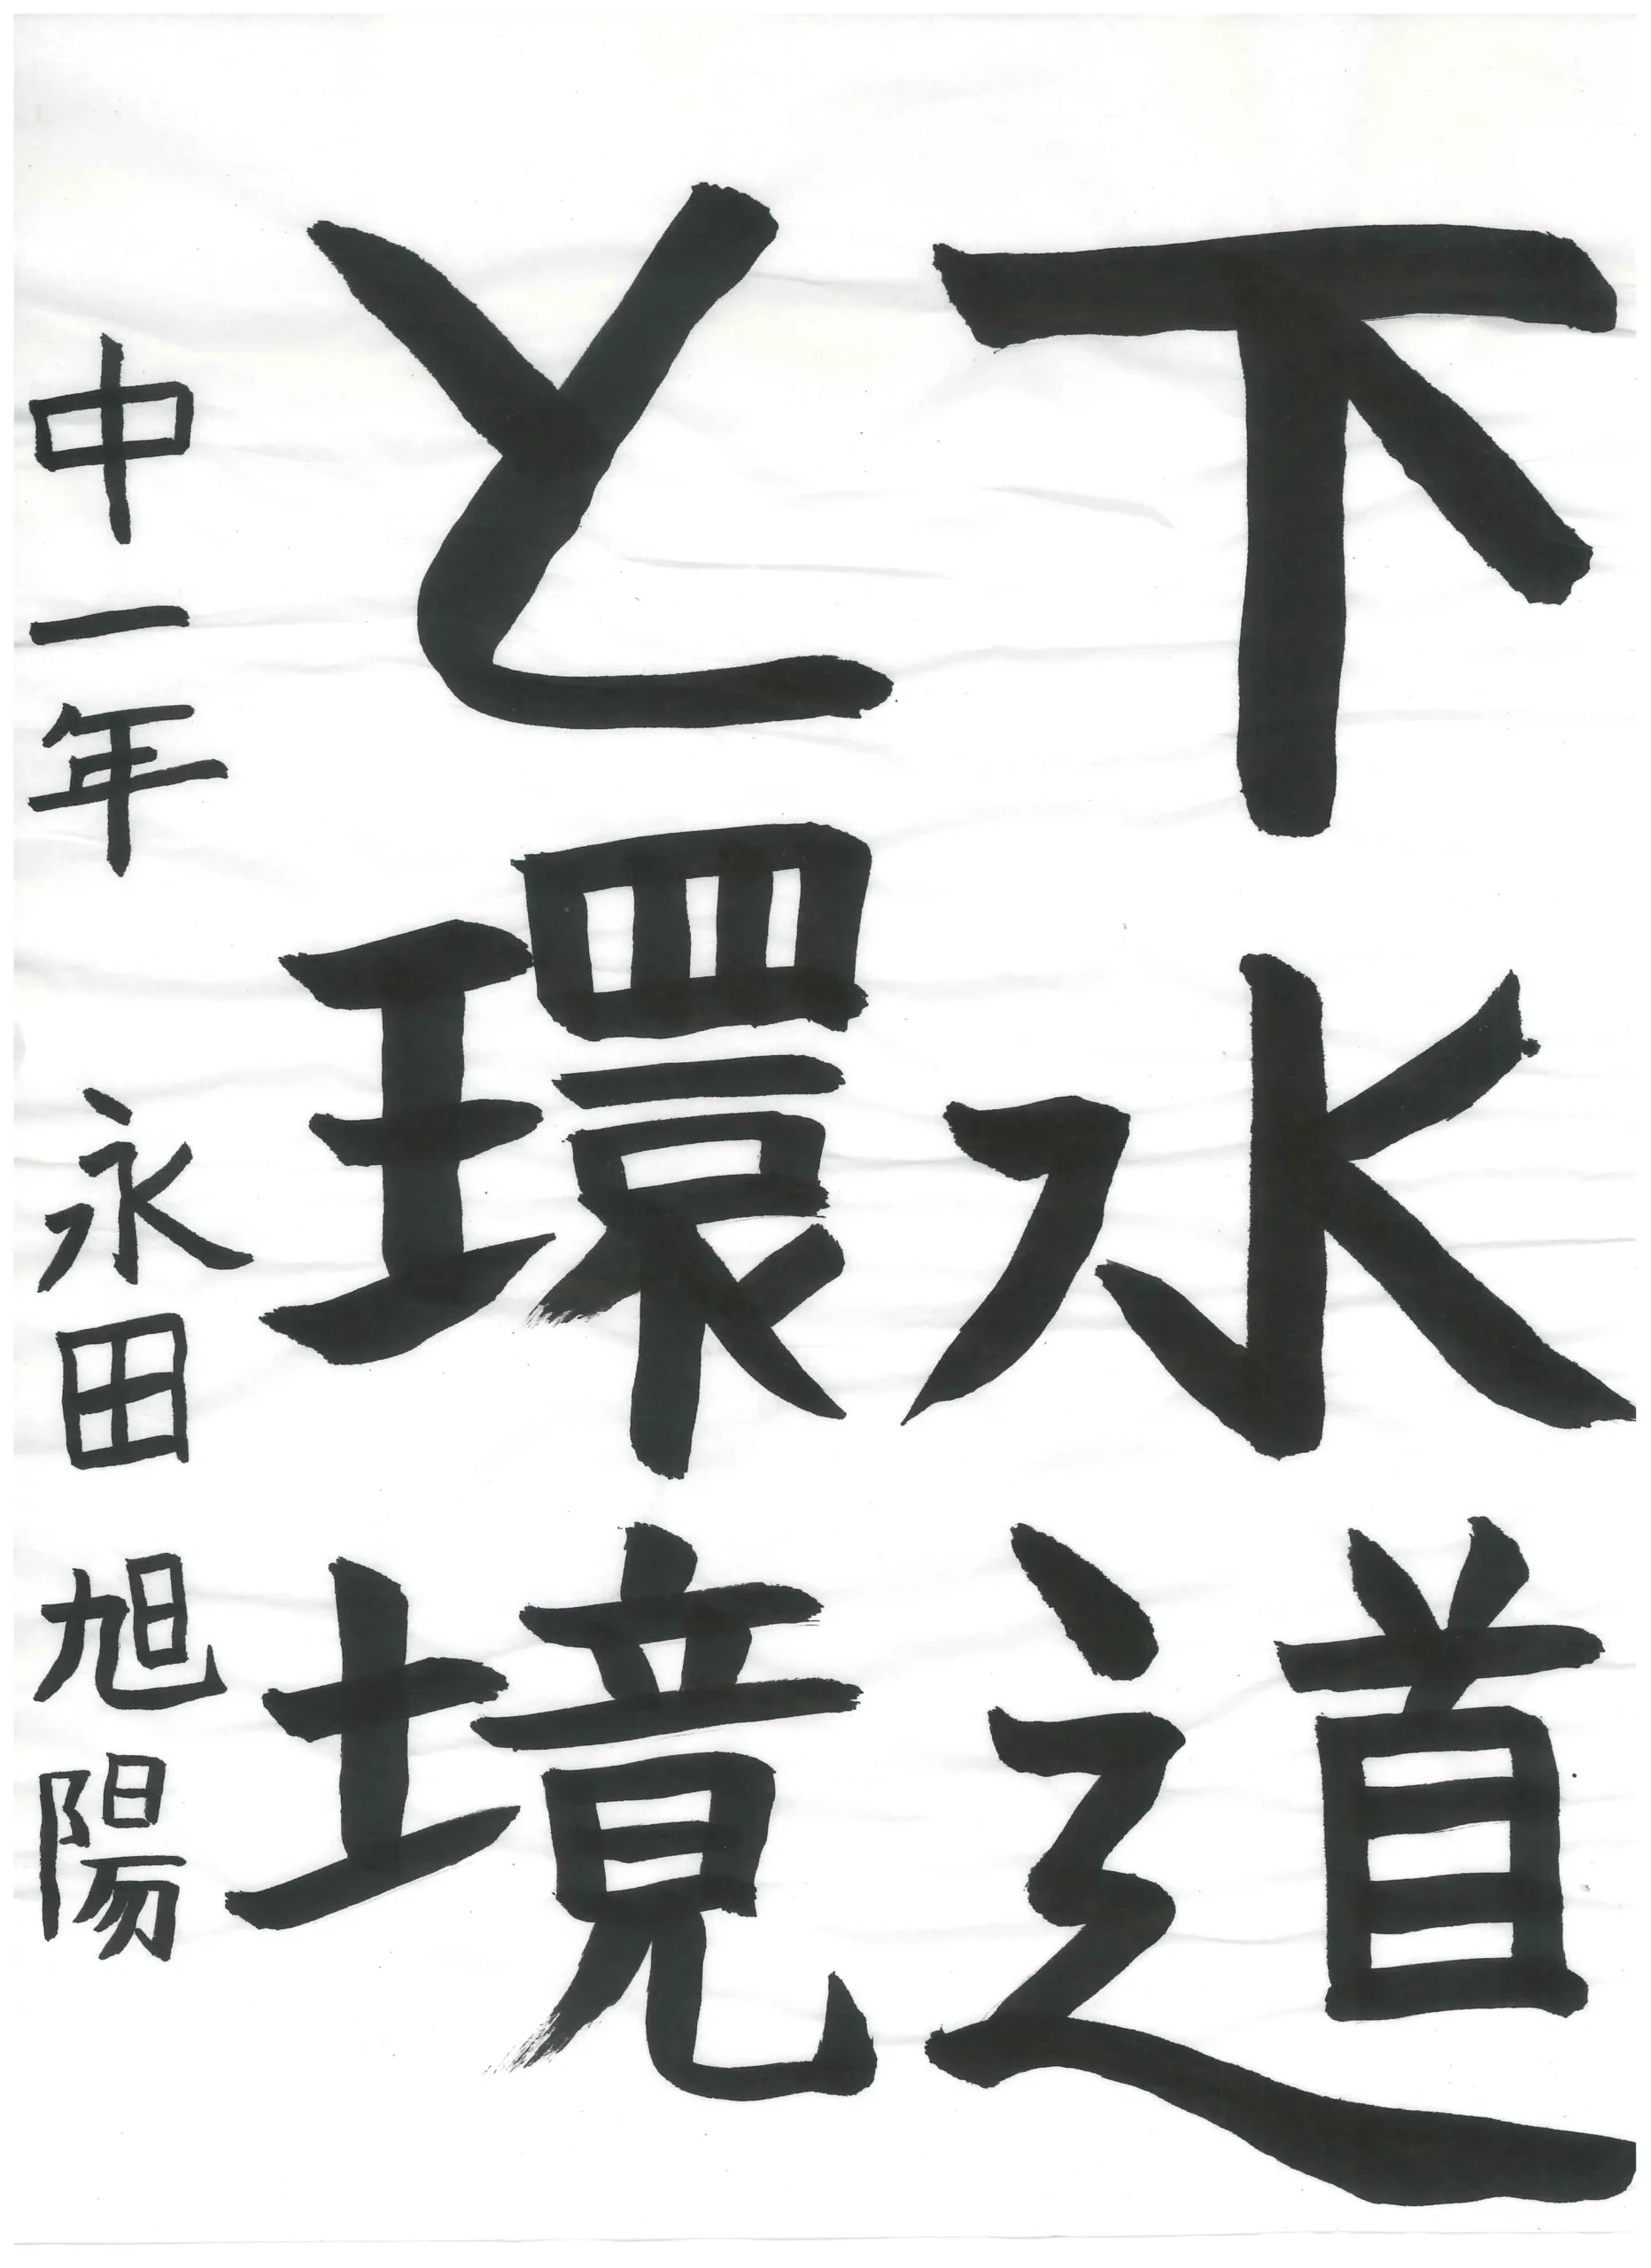 下水道
と環境
中一年 永田旭陽